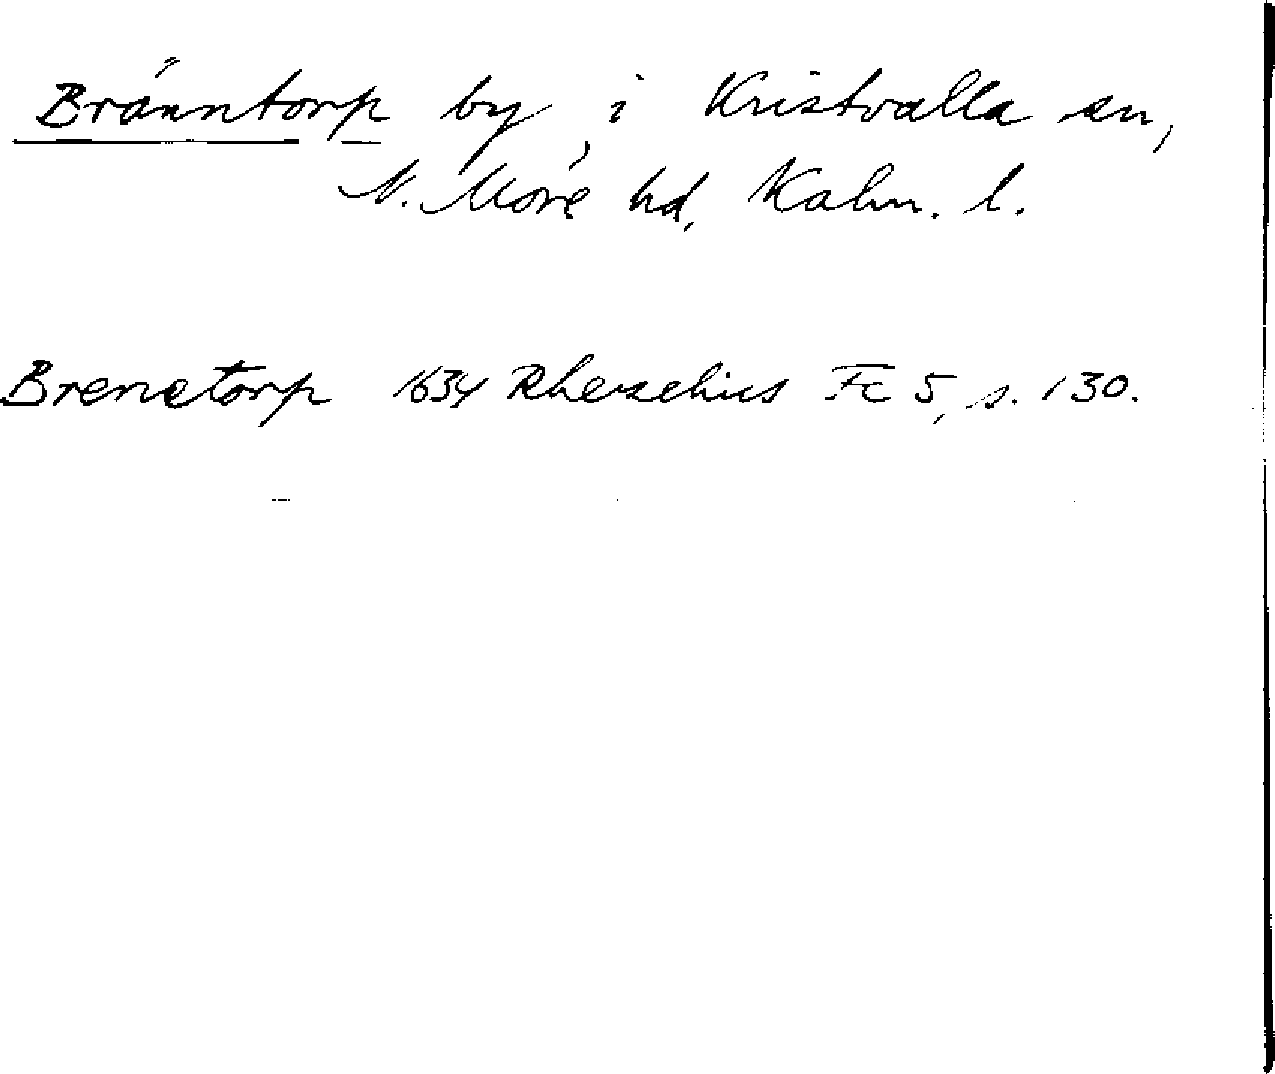 Bränntorp by i Kristvalla sn,
N. Möre hd, Kalm. l.
Brenetorp 1634 Rhezelius Fc 5, s. 130.